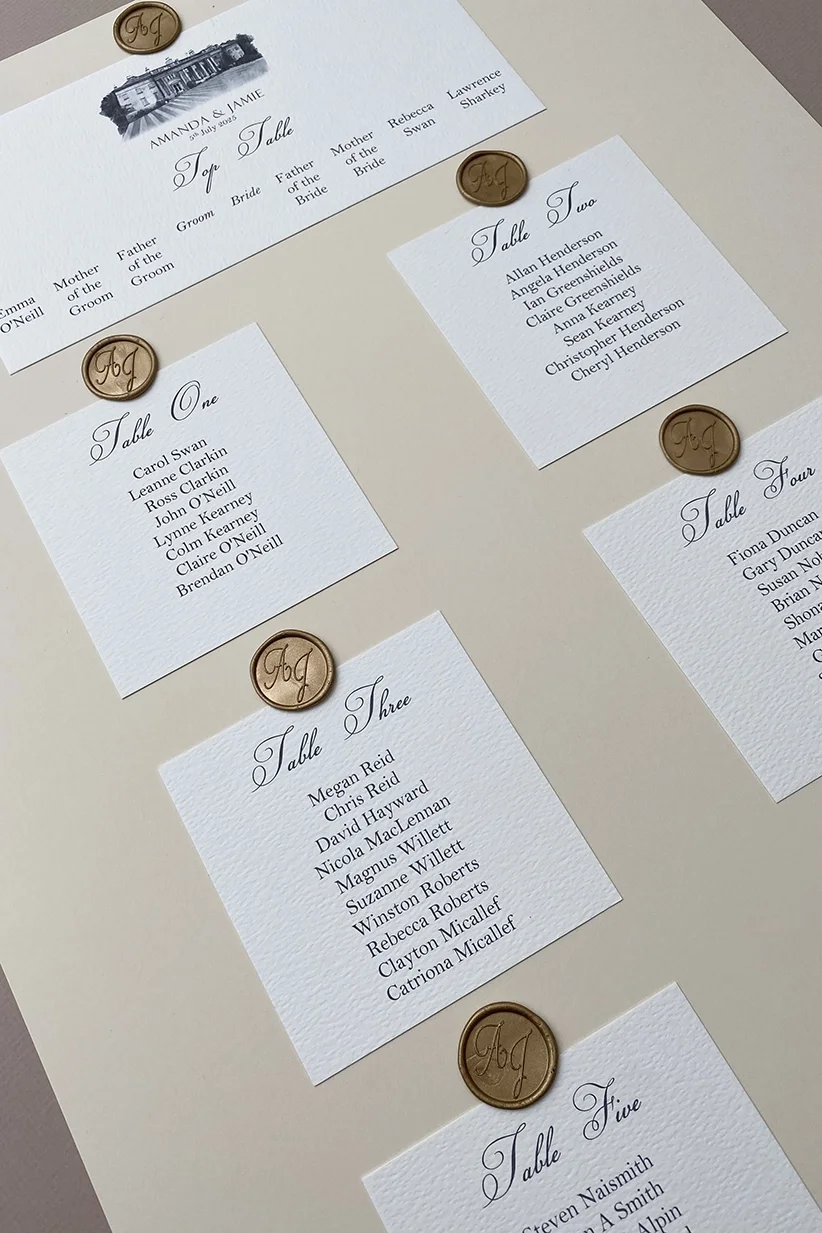 AJ
AMANDA & JAMIE
5th July 2025
Top Table
Emma O'Neill
Mother of the Groom
Father of the Groom
Groom
Bride
Father of the Bride
Mother of the Bride
Rebecca Swan
Lawrence Sharkey
AJ
Table One
Carol Swan
Leanne Clarkin
Ross Clarkin
John O'Neill
Lynne Kearney
Colm Kearney
Claire O'Neill
Brendan O'Neill
AJ
Table Two
Allan Henderson
Angela Henderson
Ian Greenshields
Claire Greenshields
Anna Kearney
Sean Kearney
Christopher Henderson
Cheryl Henderson
AJ
Table Three
Megan Reid
Chris Reid
David Hayward
Nicola MacLennan
Magnus Willett
Suzanne Willett
Winston Roberts
Rebecca Roberts
Clayton Micallef
Catriona Micallef
AJ
Table Four
Fiona Duncan
Gary Duncan
Susan
Brian
AJ
Table Five
Steven Naismith
A Smith
Alpin